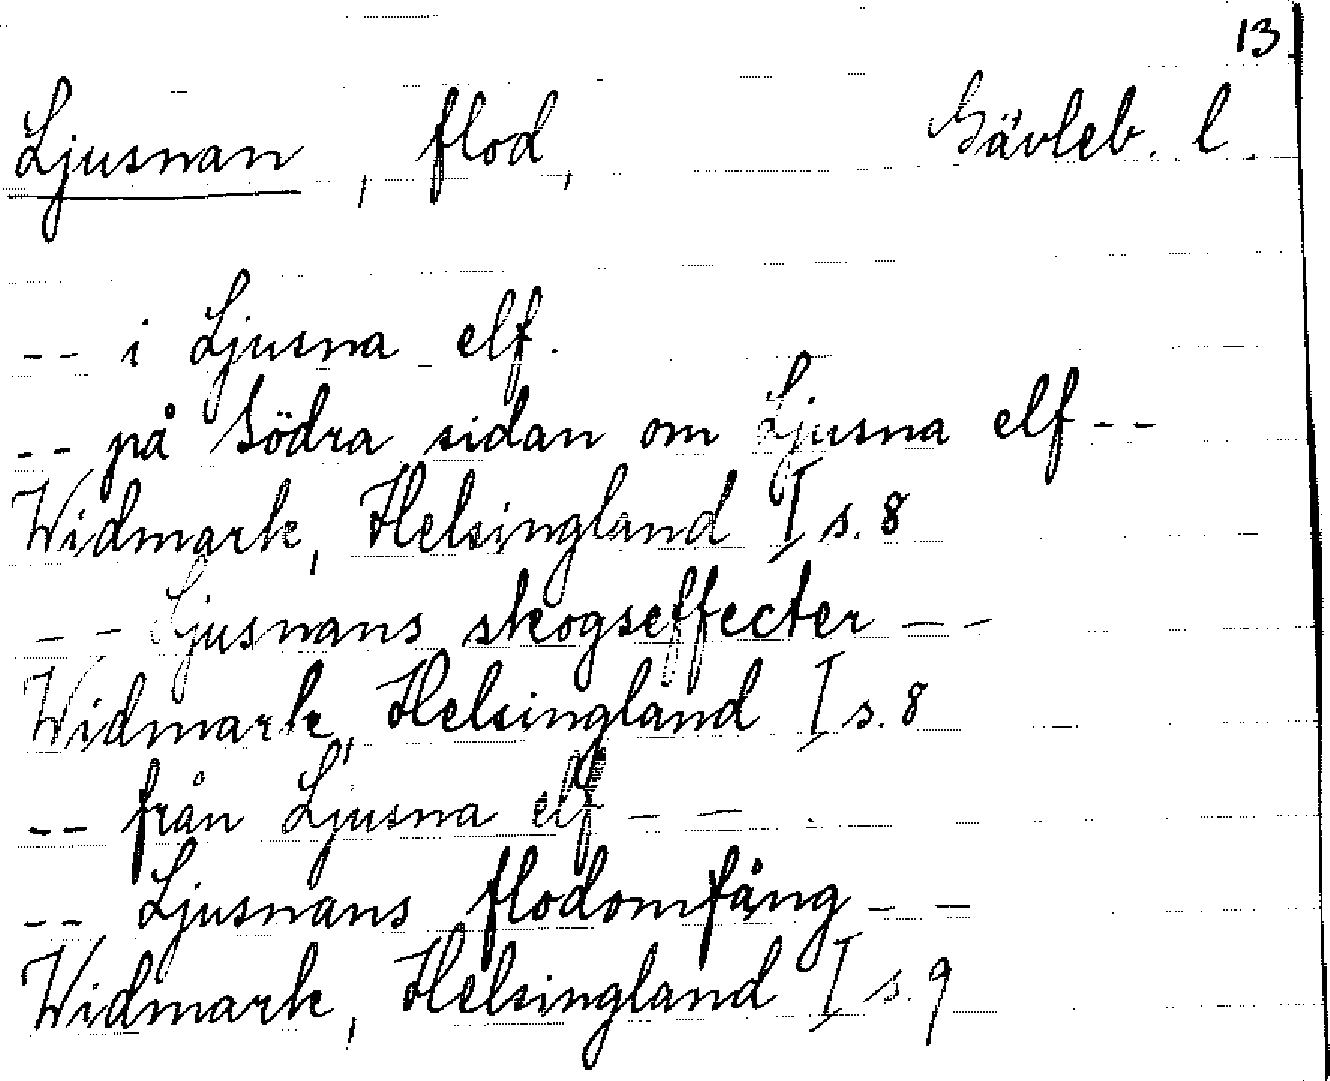 13
Ljusnan, flod, Gävleb. l.
-- i Ljusna elf.
-- på Södra sidan om Ljusna elf --
Widmark, Helsingland I s. 8
-- Ljusnans skogseffecter --
Widmark, Helsingland I s. 8
-- från Ljusna elf --
-- Ljusnans flodomfång --
Widmark, Helsingland I s. 9